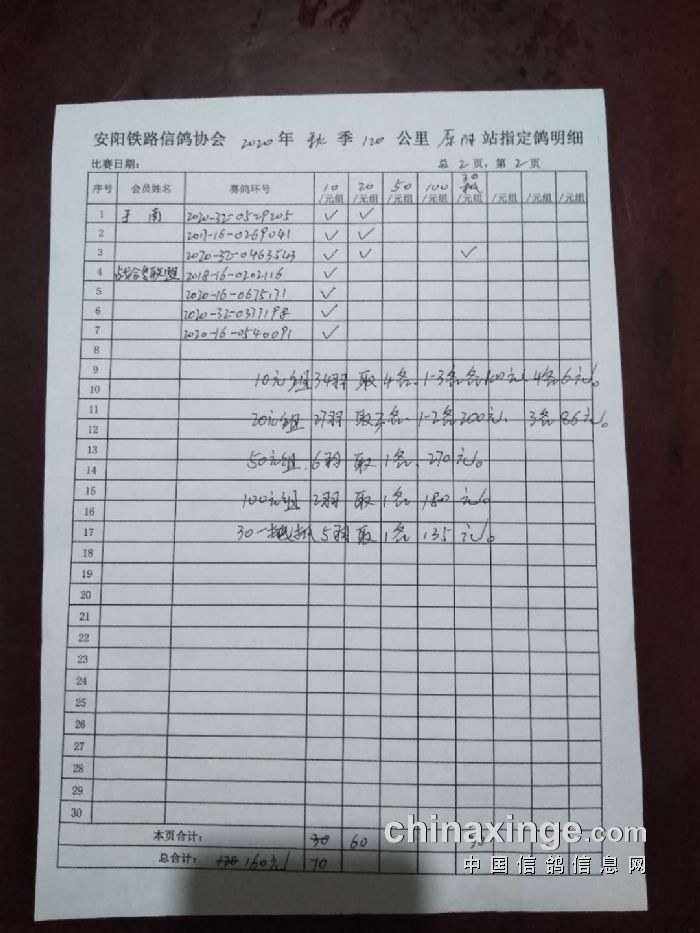 安阳铁路信鸽协会 2020 年 秋 季 120 公里 原阳 站指定鸽明细
比赛日期: 总 2 页,第 2 页
序号 会员姓名 赛鸽环号 10/元组 20/元组 50/元组 100/元组 30抓/元组 /元组 /元组 /元组
1 于南 2020-32-0529205 ✓ ✓
2 2017-16-0269041 ✓ ✓
3 2020-32-0463543 ✓ ✓ ✓
4 2018-16-0202116 ✓
5 2020-16-0675171 ✓
6 2020-32-0377198 ✓
7 2020-16-0540091 ✓
8
9
10 10元组 34羽 取 4名、1-3名各100元、4名6元。
11
12 20元组 27羽 取3名、1-2名200元、3名86元。
13
14 50元组 6羽 取 1名、270元。
15
16 100元组 2羽 取 1名 180元。
17 30一把抓 5羽 取 1名 135元。
18
19
20
21
22
23
24
25
26
27
28
29
30
本页合计: 30 60
总合计: 160元 70
chinaxinge.com
中国信鸽信息网